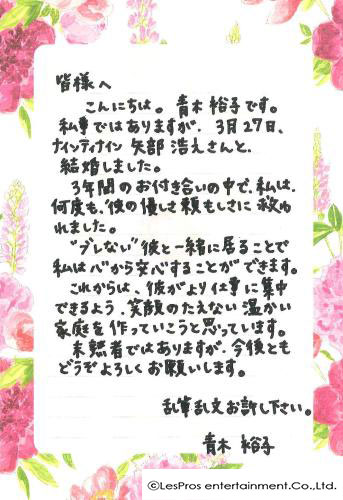 皆様へ
こんにちは。青木裕子です。
私事ではありますが、3月27日、
ナインティナイン 矢部 浩之さんと、
結婚しました。
3年間のお付き合いの中で、私は、
何度も、彼の優しさ、頼もしさに救わ
れました。
"ブレない"彼と一緒に居ることで
私は心から安心することができます。
これからは、彼がより仕事に集中
できるよう、笑顔のたえない温かい
家庭を作っていこうと思っています。
未熟者ではありますが、今後とも
どうぞよろしくお願いします。
乱筆乱文お許し下さい。
青木 裕子
©LesPros entertainment.Co.,Ltd.